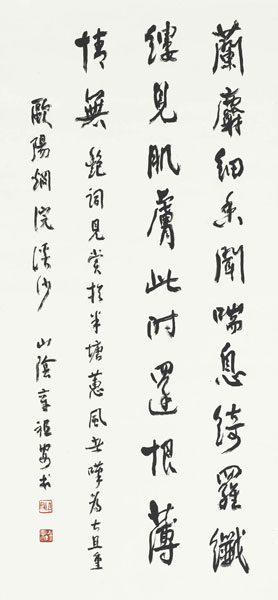 蘭麝細香聞喘息綺羅纖
縷見肌膚此時還恨薄
情無 艷詞見賞於半塘蕙風嘆為大且重
歐陽烱浣溪沙 山陰章祖安書